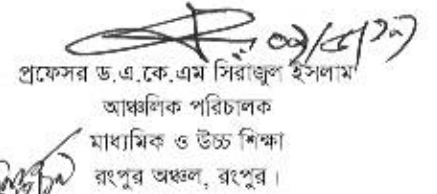 প্রফেসর ড.এ.কে.এম সিরাজুল ইসলাম
আঞ্চলিক পরিচালক
মাধ্যমিক ও উচ্চ শিক্ষা
রংপুর অঞ্চল, রংপুর।